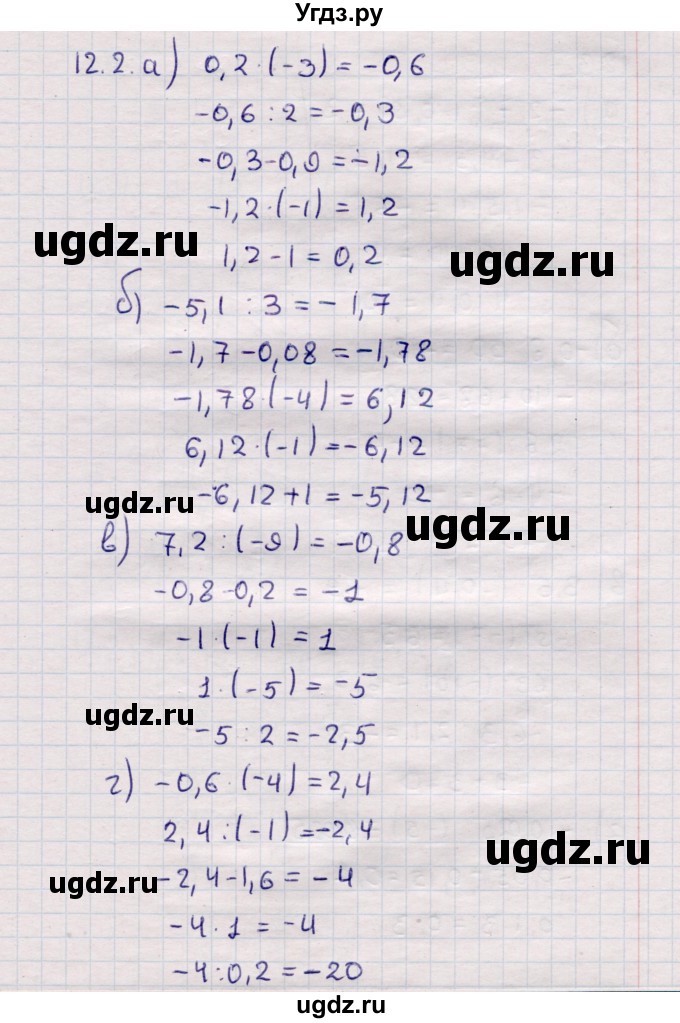 Угдз.ру
12.2. а) 0,2·(-3) = -0,6
-0,6 : 2 = -0,3
-0,3-0,9 = -1,2
-1,2·(-1) = 1,2
ugdz.ru
1,2-1 = 0,2
ugdz.ru
б) -5,1 : 3 = -1,7
-1,7-0,08 = -1,78
-1,78·(-4) = 6,12
6,12·(-1) = -6,12
-6,12+1 = -5,12
ugdz.ru
ugdz.ru
в) 7,2 : (-9) = -0,8
-0,8-0,2 = -1
-1·(-1) = 1
1·(-5) = -5
ugdz.ru
-5 : 2 = -2,5
г) -0,6·(-4) = 2,4
2,4 : (-1) = -2,4
ugdz.ru
-2,4-1,6 = -4
ugdz.ru
-4·1 = -4
-4:0,2 = -20
ugdz.ru